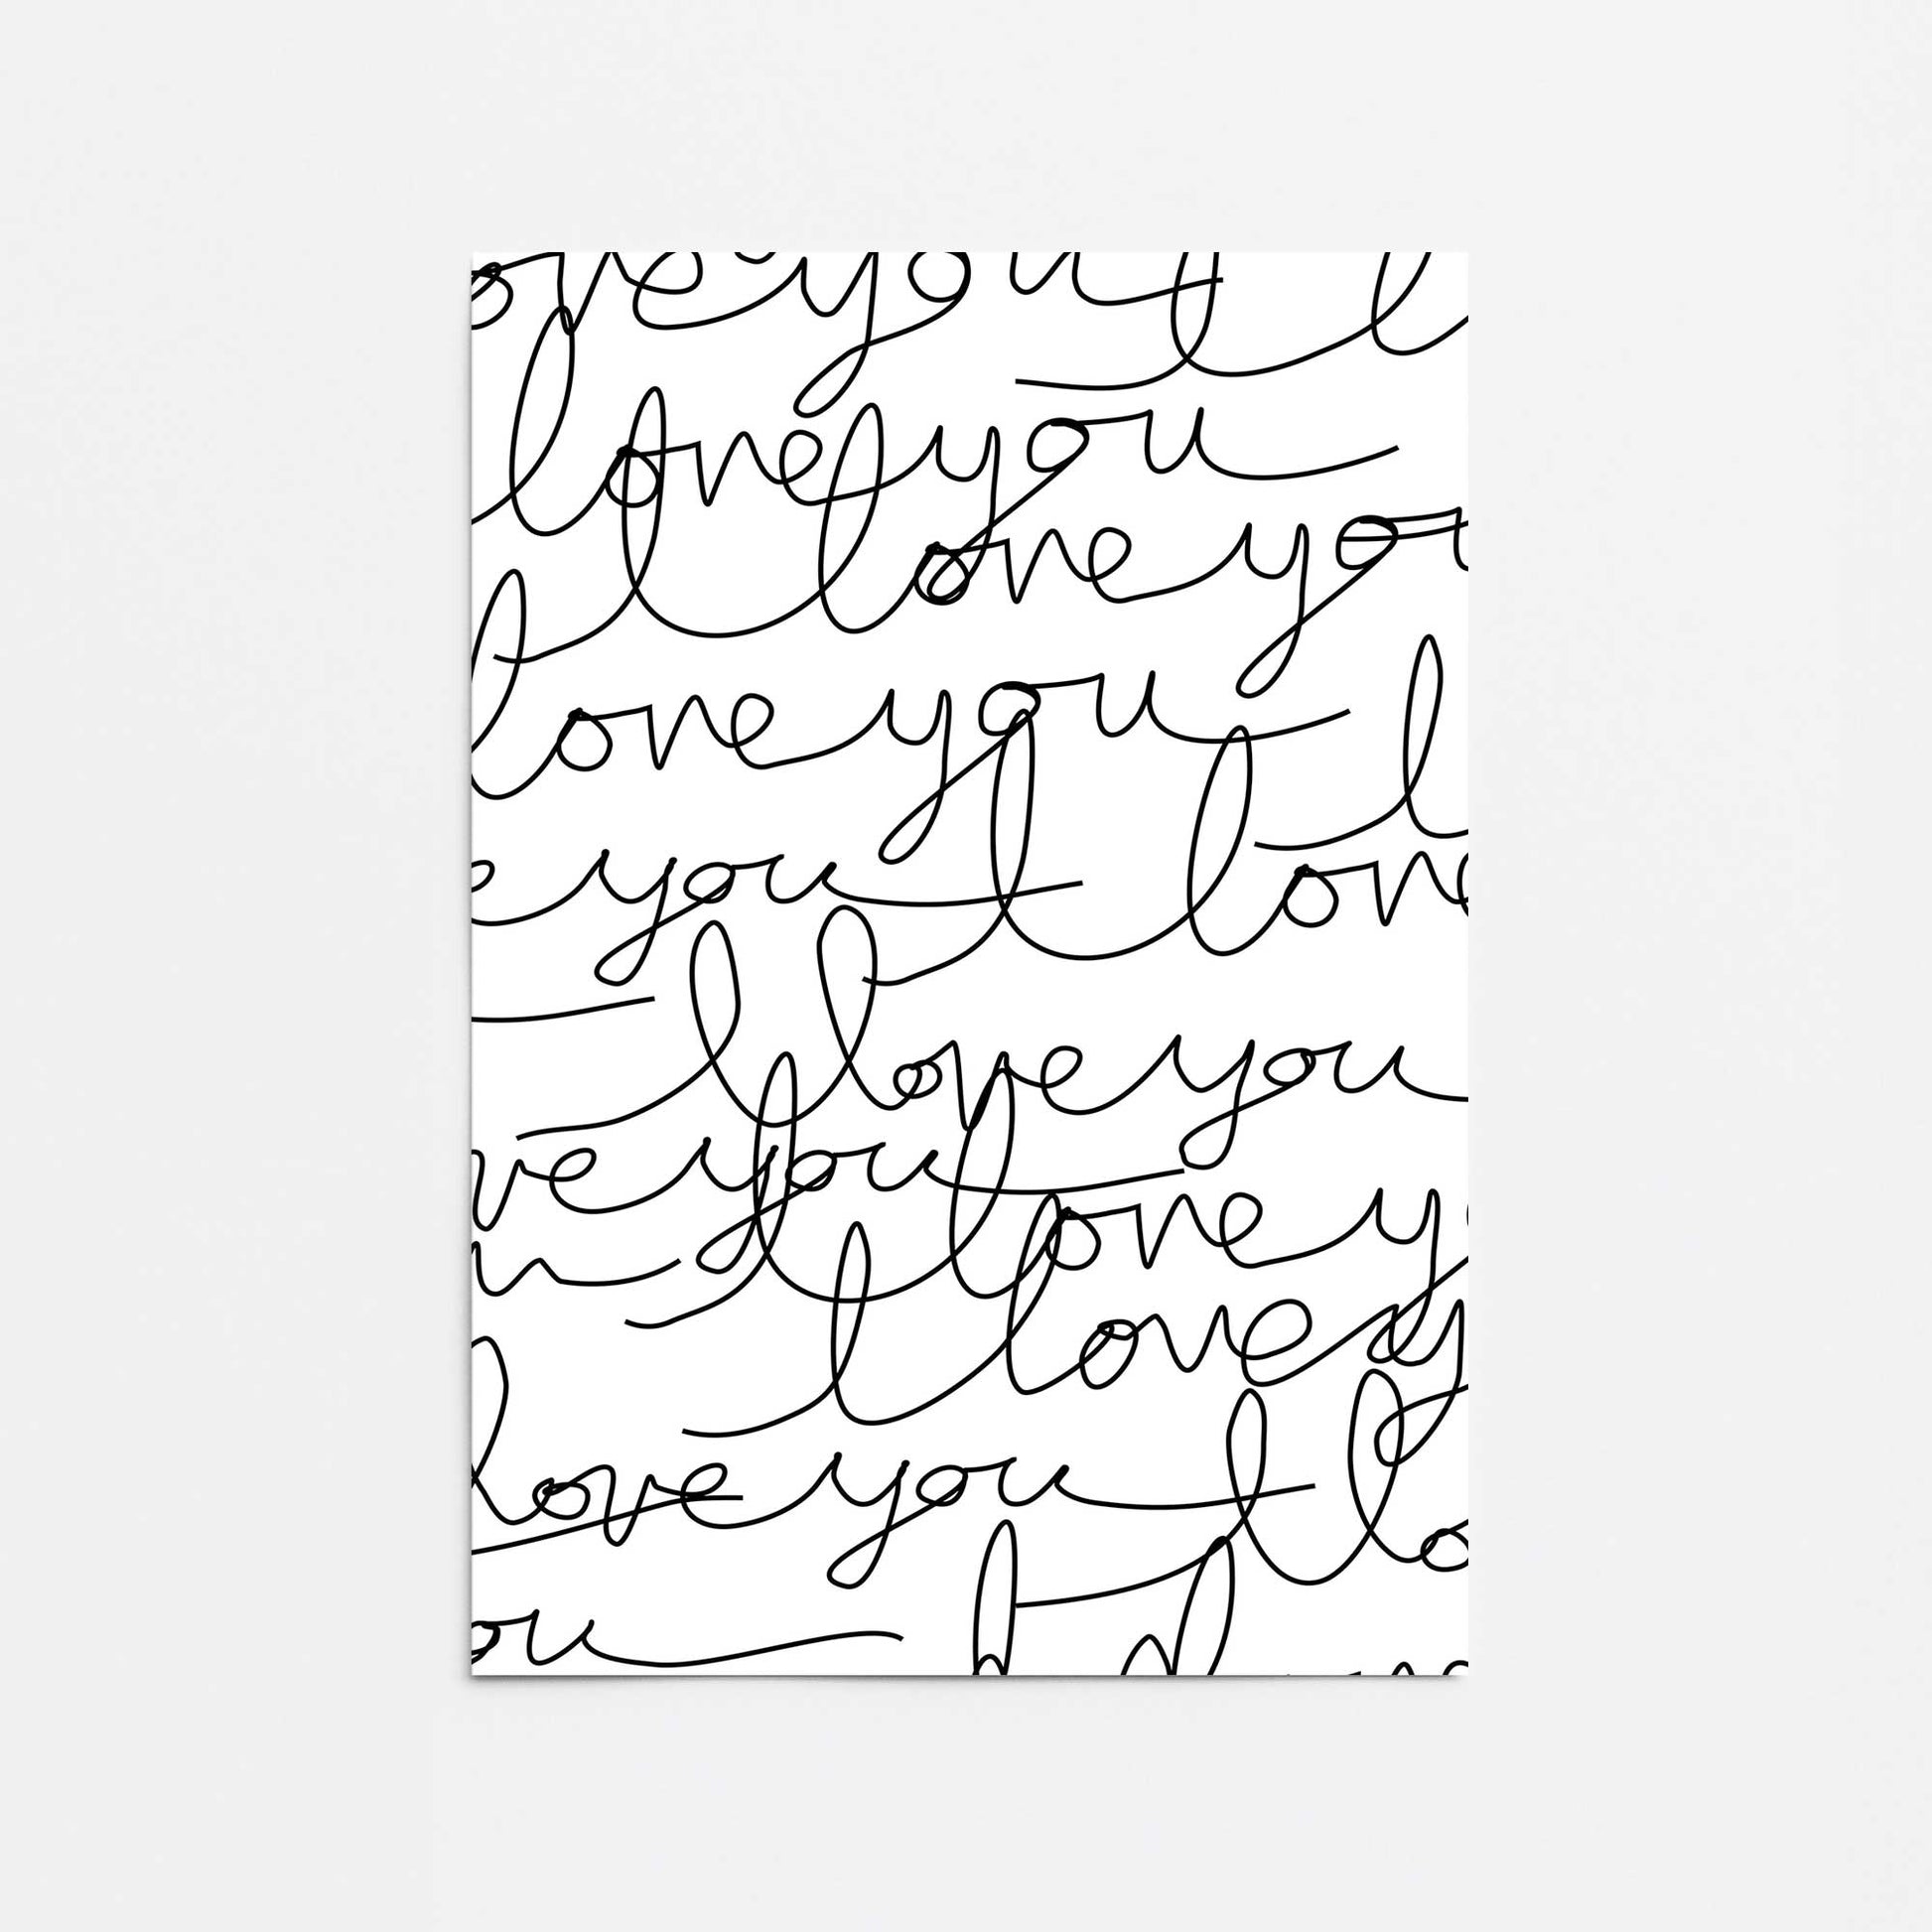 ove you I l
love you
I love you
love you I
e you I lon
I love you
ve you I love y
u I love y
love you I lo
ou I